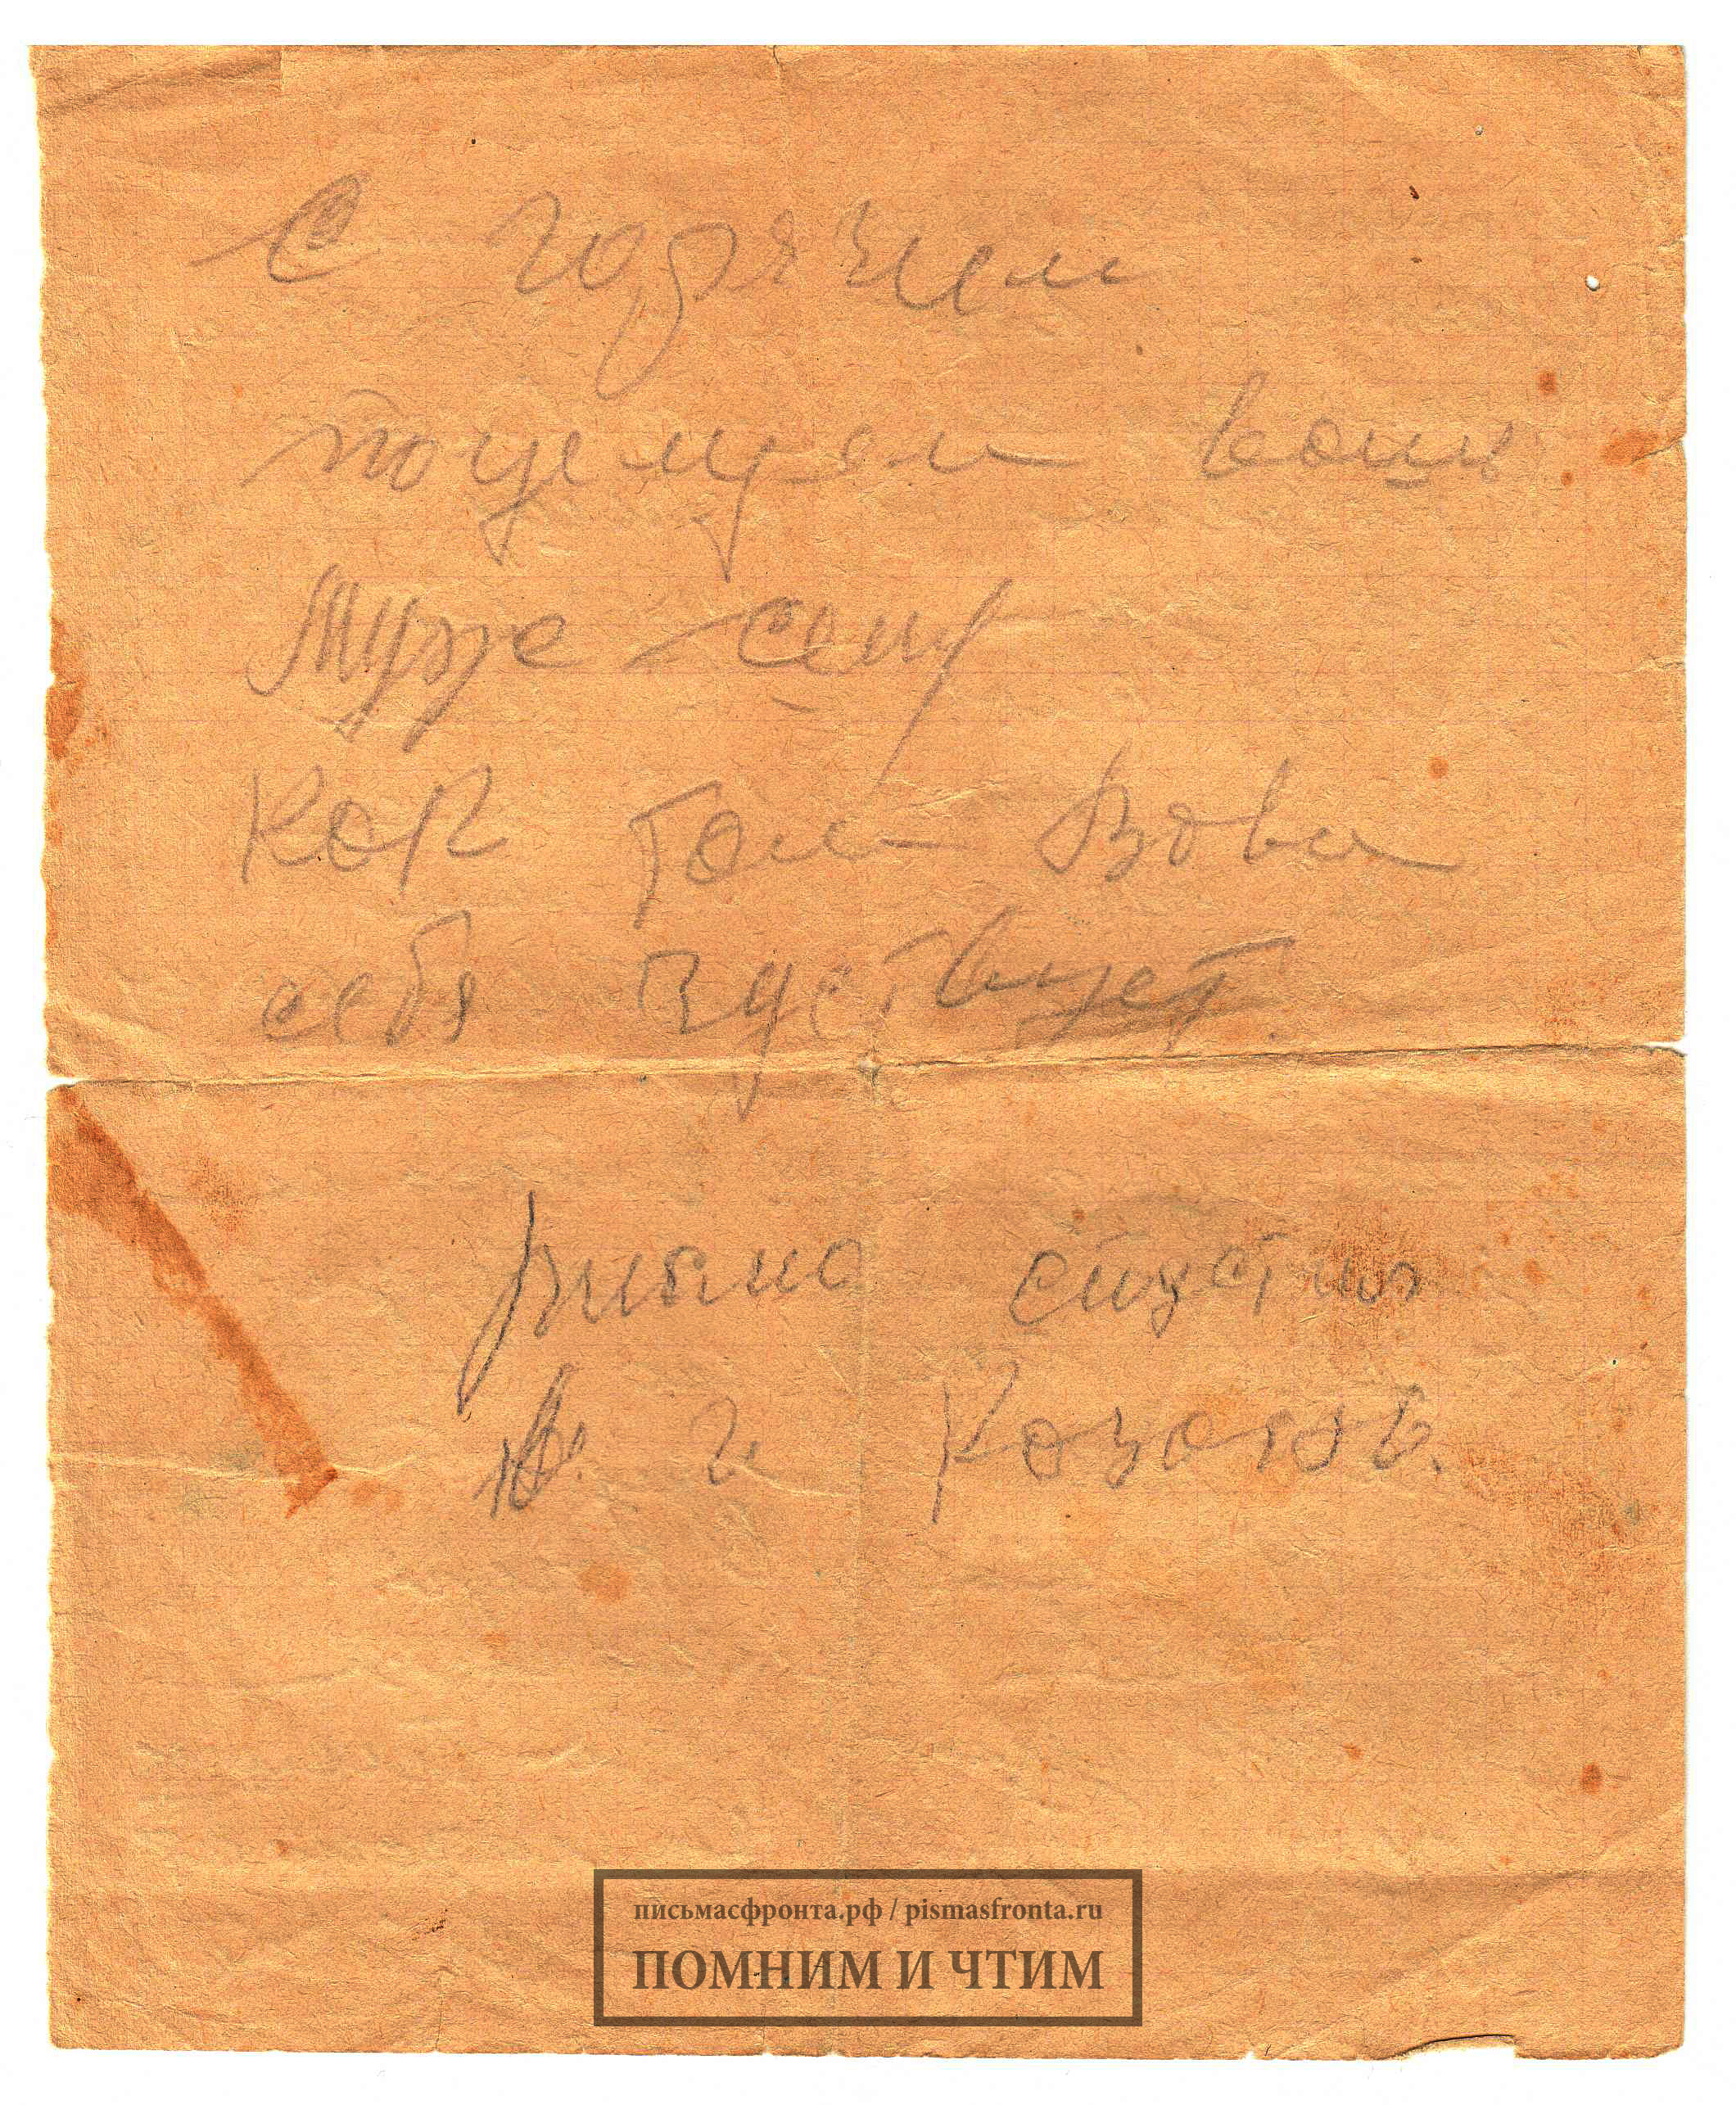 С горячем
поцелуем ваш
Муже сещ
как там Вова
себя чуствует.
письмо спустя
Н. г Козлов.
письмасфронта.рф / pismasfronta.ru
ПОМНИМ И ЧТИМ